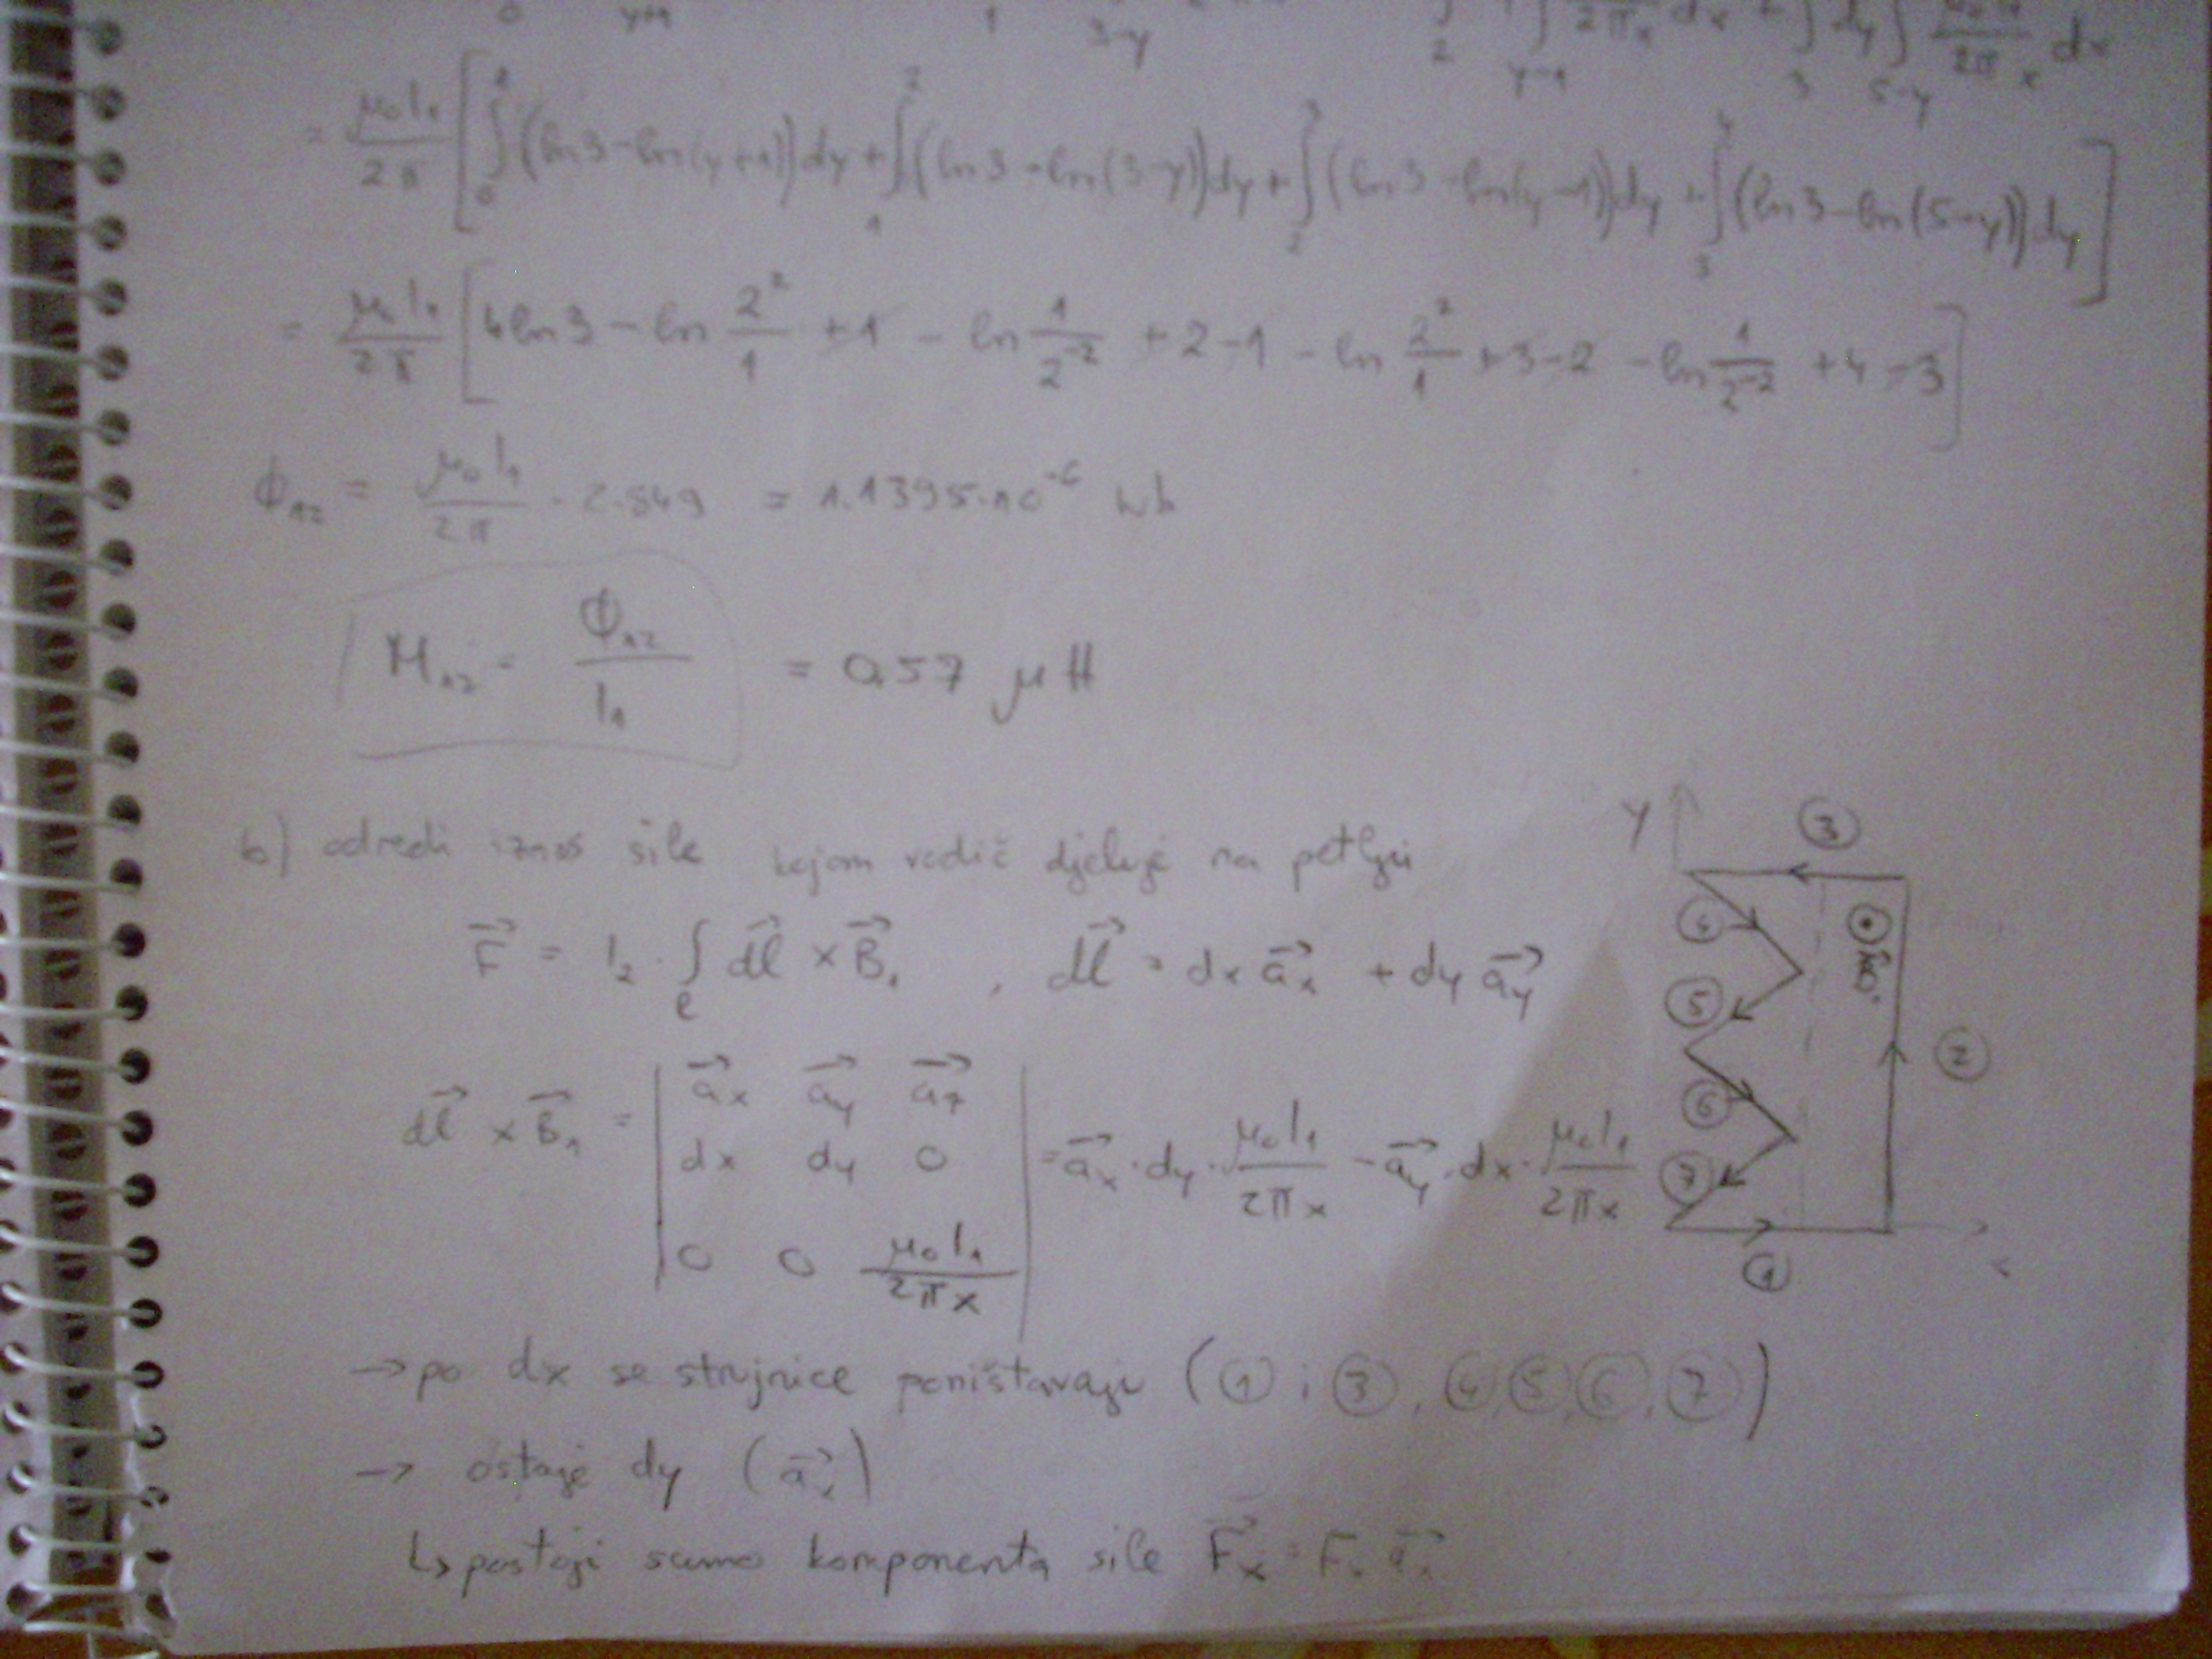 0 y+1 1 3-y 2 y-1 2πx dx + ∫ dy ∫ 2π x dx 3 5-y
= μ₀I₁/2π [ ∫₀¹ (ln3-ln(y+1)) dy + ∫₁² (ln3-ln(3-y)) dy + ∫₂³ (ln3-ln(y-1)) dy + ∫₃⁴ (ln3-ln(5-y)) dy ]
= μ₀I₁/2π [ 4ln3 - ln 2²/1 + 1 - ln 1/2⁻² + 2-1 - ln 2²/1 + 3-2 - ln 1/2⁻² + 4-3 ]
ϕ₁₂ = μ₀I₁/2π · 2.849 = 1.1395·10⁻⁶ Wb
M₁₂ = ϕ₁₂/I₁ = 0.57 μH
b) odredi iznos sile kojom vodič djeluje na petlju
F⃗ = I₂ · ∫ₗ dl⃗ × B⃗₁ , dl⃗ = dx a⃗ₓ + dy a⃗y
dl⃗ × B⃗₁ = | a⃗x a⃗y a⃗z | = a⃗x · dy · μ₀I₁/2πx - a⃗y · dx · μ₀I₁/2πx
dx dy 0
0 0 μ₀I₁/2πx
y 3
4
5 B⃗₁
2
6
7
1
→ po dx se strujnice poništavaju (1 i 3, 4, 5, 6, 7)
→ ostaje dy (a⃗x)
↳ postoji samo komponenta sile F⃗x = Fx a⃗x